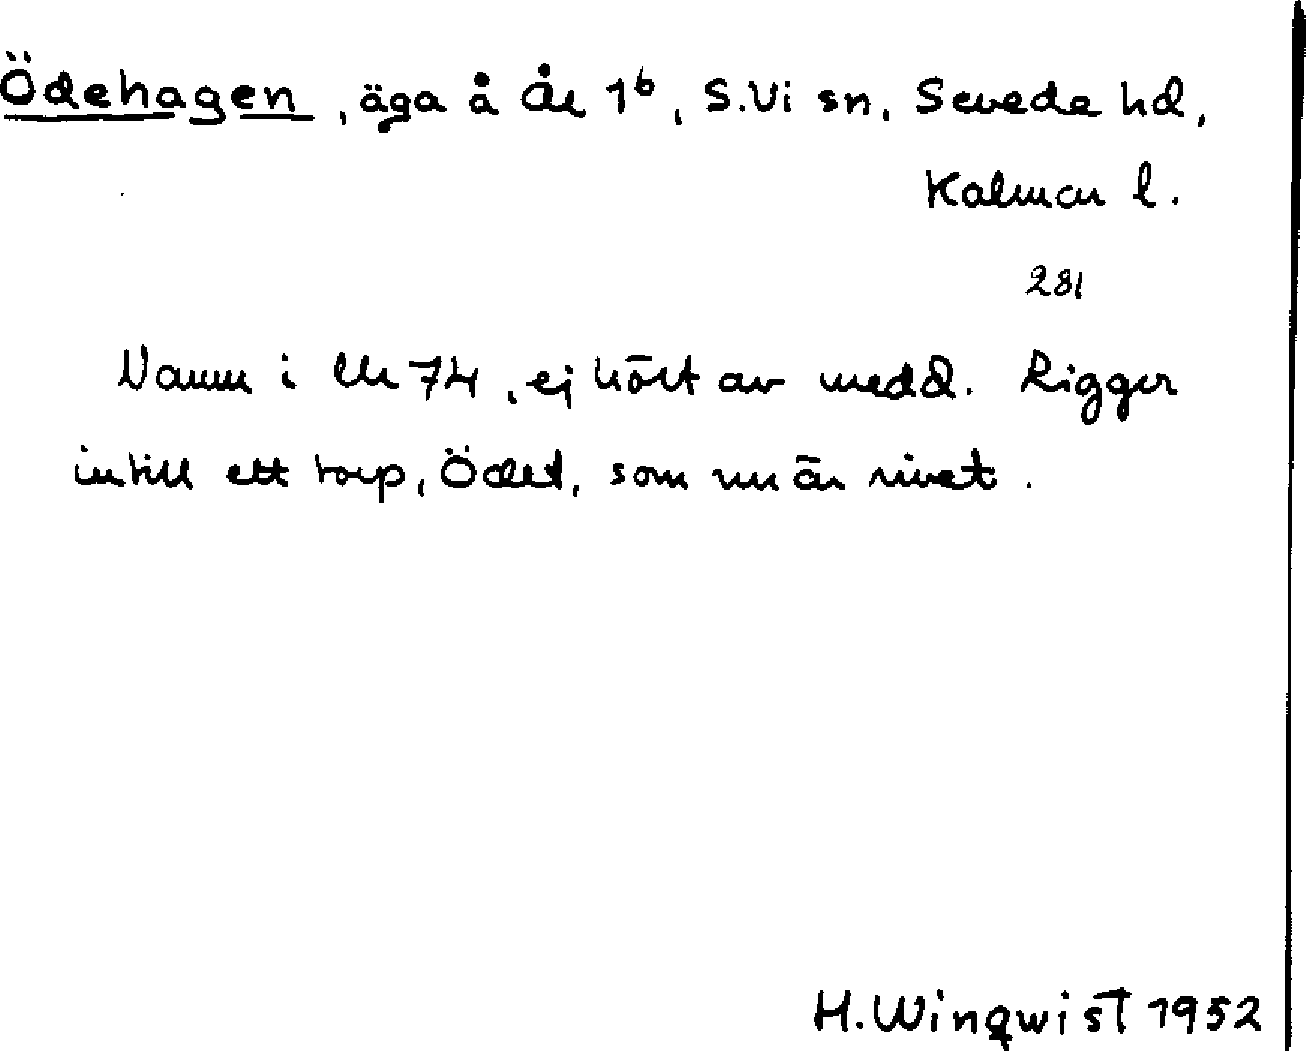 Ödehagen, äga å År 1⁶, S.Vi sn, Sevede hd,
Kalmar l.
281
Namn i Um 74, ej hört av medd. Ligger
intill ett torp, Ödet, som nu är rivet.
H. Winqwist 1952